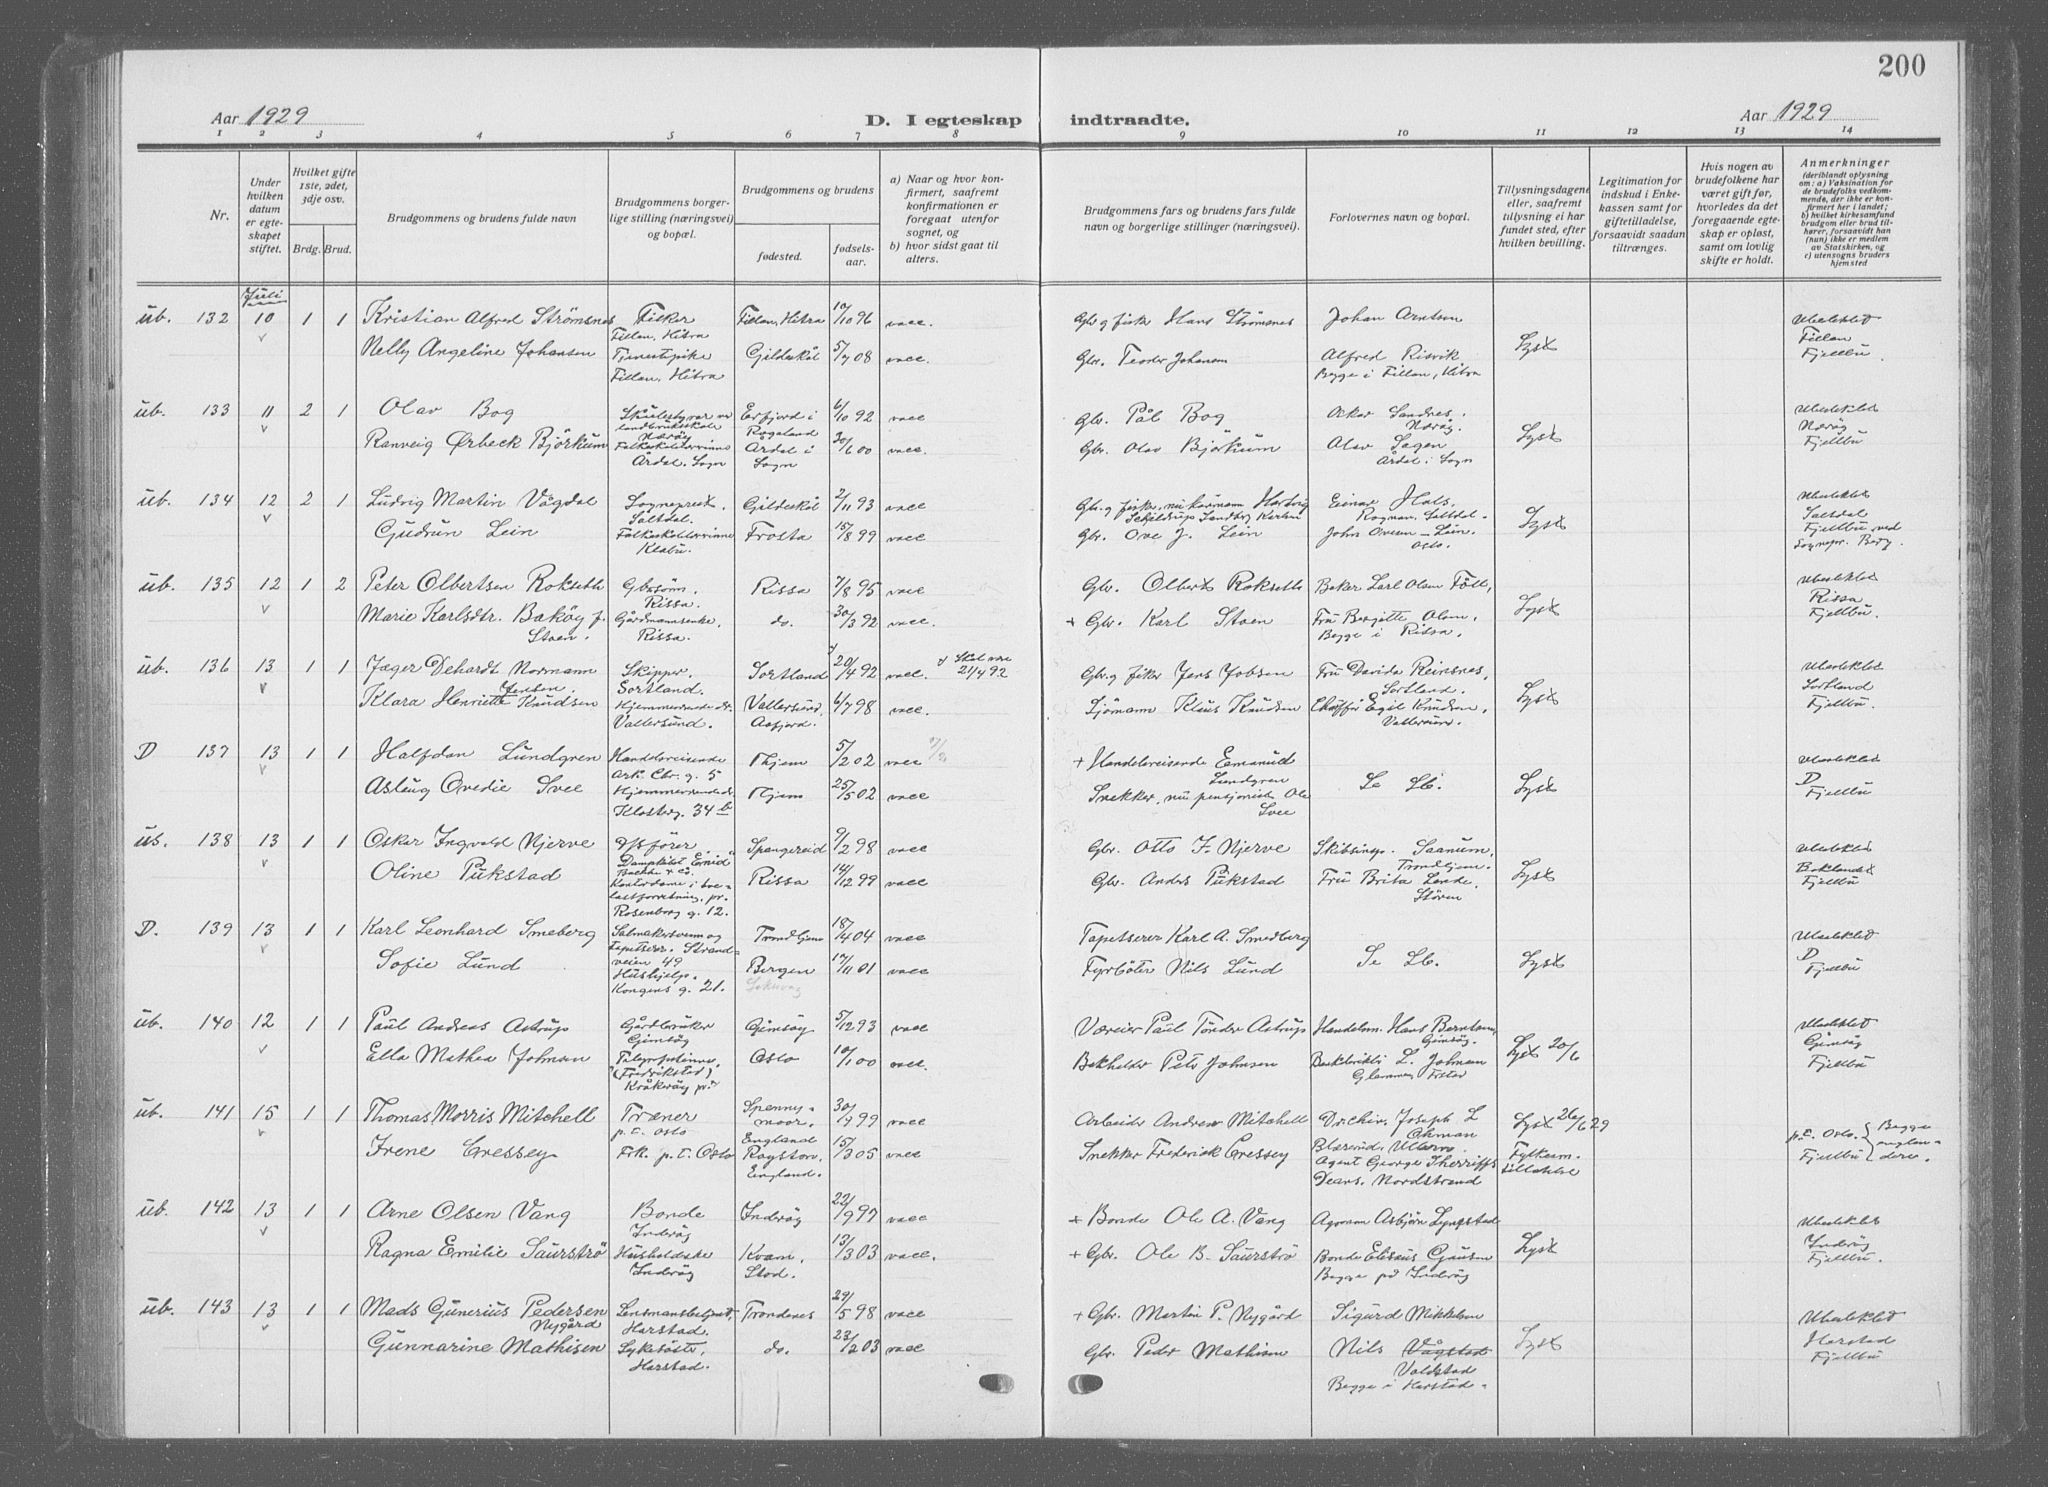 200
Aar 1929
D. I egteskap indtraadte.
Aar 1929
1 2 3 4 5 6 7 8 9 10 11 12 13 14
Nr.
Under hvilken datum er egteskapet stiftet.
Hvilket gifte 1ste, 2det, 3dje osv.
Brdg. Brud.
Brudgommens og brudens fulde navn
Brudgommens borgerlige stilling (næringsvei) og bopæl.
Brudgommens og brudens
fødested.
fødselsaar.
a) Naar og hvor konfirmert, saafremt konfirmationen er foregaat utenfor sognet, og
b) hvor sidst gaat til alters.
Brudgommens fars og brudens fars fulde navn og borgerlige stillinger (næringsvei).
Forlovernes navn og bopæl.
Tillysningsdagene eller, saafremt tilysning ei har fundet sted, efter hvilken bevilling.
Legitimation for indskud i Enkekassen samt for giftetilladelse, forsaavidt saadan tiltrænges.
Hvis nogen av brudefolkene har været gift før, hvorledes da det foregaaende egteskap er opløst, samt om lovlig skifte er holdt.
Anmerkninger
(deriblandt oplysning om: a) Vaksination for de brudefolks vedkommende, der ikke er konfirmert her i landet; b) hvilket kirkesamfund brudgom eller brud tilhører, forsaavidt han (hun) ikke er medlem av Statskirken, og c) utensogns bruders hjemsted
Juli
ub. 132 10 1 1 Kristian Alfred Strömsnes Fisker Fillan, Hitra Fillan, Hitra 10/10 96 vacc. Gbr og fisk Hans Strömsnes Johan Arntsen Lyst Ubeslektet Fillan
Nelly Angeline Johansen Tjenestepike Fillan, Hitra Gildeskål 5/7 08 vacc. Gbr. Teodor Johansen Alfred Risvik Begge i Fillan, Hitra Fjellbu.
ub. 133 11 2 1 Olav Bog Skulestyrar ved landbruksskole Nærøy Erfjord i Rogaland 6/10 92 vacc Gbr. Pål Bog Oskar Sandnes. Nærøy. Lyst Ubeslektet Nærøy
Ranveig Ørbeck Björkum Årdal. Sogn Årdal i Sogn 30/6 00 vacc. Gbr. Olav Björkum Olav Sagen Årdal i Sogn Fjellbu
ub. 134 12 2 1 Ludvig Martin Vågdal Sogneprest. Saltdal. Gildeskål 2/11 93 vacc Einar Hals, Rognan, Saltdal. Lyst Ubeslektet Saltdal
Gudrun Lein Klæbu. Frosta 15/8 99 vacc Gbr. Ove J. Lein Oslo. Fjellbu ved Sognepr. Berg.
ub. 135 12 1 2 Peter Olbertsen Rokseth Gbrsönn. Rissa. Rissa 7/8 95 vacc Gbr. Olbert Rokseth Baker Carl Olsen Lyst Ubeslektet Rissa
Marie Karlsdtr. Bakøy f. Stoen. Gårdmannsenke. Rissa. do. 30/3 92 vacc. + Gbr. Karl Stoen Fru Bergitte Olsen. Begge i Rissa. Fjellbu.
ub. 136 13 1 1 Jæger Dehardt Normann Jensen. Skipper. Sortland. Sortland 20/4 92 vacc. Skal være 21/4 92 Gbr og fisker Jens Fru Davida Reinsnes, Sortland. Lyst Ubeslektet Sortland
Klara Henriette Knudsen Hjemmeværende dtr. Vallersund. Vallersund, 6/7 98 vacc. Sjömann Klaus Knudsen Chauffør Egil Knudsen, Vallersund. Fjellbu.
D 137 13 1 1 Halfdan Lundgren Handelsreisende Ark. Chr. g. 5 Thjem 5/2 02 vacc + Handelsreisende Emanuel Lundgren Se Lb. Lyst Ubeslektet D
Aslaug Ovedie Svee Hjemmeværende dtr. Klosterg. 34 b Thjem 25/5 02 vacc Snekker, nu pensjonist Ole Svee Fjellbu
ub. 138 13 1 1 Oskar Ingvald Njerve Spangereid 9/2 98 vacc Gbr. Otto F. Njerve Skibsinsp. Saanum, Trondhjem. Lyst Ubeslektet
Oline Pukstad Rosenborg g. 12. Rissa 14/12 99 vacc Gbr. Anders Pukstad Fru Brita Lende. Stören Fjellbu
D. 139 13 1 1 Karl Leonhard Smeberg Salmakersvenn og Tapetserer. Strandveien 49 Trondhjem 18/4 04 vacc Tapetserer Karl A. Smedberg Se Lb. Lyst Ubeslektet D
Sofie Lund Hushjelp. Kongens g. 21. Bergen 17/11 01 vacc Fyrböter Nils Lund Fjellbu
ub. 140 12 1 1 Paul Andreas Astrup Gårdbruker Gimsöy Gimsöy 5/12 93 vacc Væreier Paul Tönder Astrup Handelsm. Hans Berntsen, Gimsöy. Lyst 20/6 Ubeslektet Gimsöy
Ella Mathea Johnsen (Fredrikstad) Kråkeröy pr. Oslo 10/1 00 vacc. Bokholder Peter Johnsen L. Johnsen Glemmen Fjellbu
ub. 141 15 1 1 Thomas Morris Mitchell Træner p.t. Oslo Spennymoor, England 30/9 99 vacc Arbeider Andrew Mitchell Direktör Joseph L Lyst 26/6 29 p.t. Oslo. Begge englendere.
Irene Cressey Frk. p.t. Oslo Royston. England. 15/3 05 vacc Snekker Frederick Cressey Agent George Sherriffs Deans. Nordstrand Fylkesm. tillatelse Fjellbu
ub. 142 13 1 1 Arne Olsen Vang Bonde Inderöy Inderöy 22/9 97 vacc + Bonde Ole A. Vang Agronom Asbjörn Lyngstad Lyst Ubeslektet Inderöy
Ragna Emilie Saurströ Inderöy Kvam, Stod. 13/3 03 vacc. + Gbr. Ole B. Saurströ Bonde Elisæus Gausen Begge på Inderöy Fjellbu.
ub. 143 13 1 1 Mads Gunerius Pedersen Nygård Lensmannsbetjent, Harstad. Trondenes 29/5 98 vacc + Gbr. Martin P. Nygård Sigurd Mikkelsen Lyst Ubeslektet Harstad
Gunnarine Mathisen Sykesöster, Harstad. do. 23/2 03 vacc Gbr. Peder Mathisen Nils Vågstad Valdstad Begge i Harstad. Fjellbu